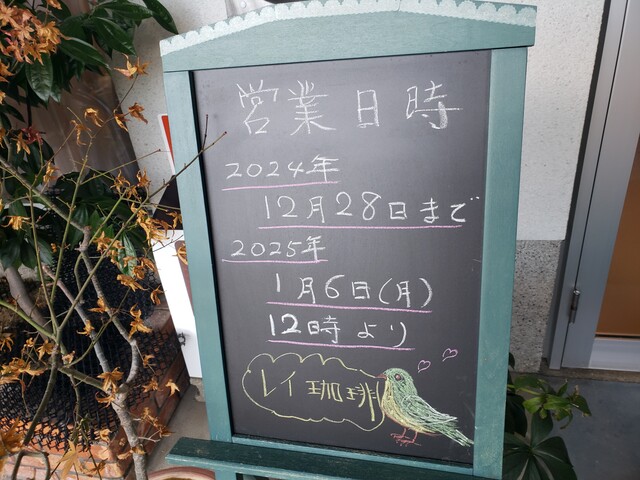 営業日時
2024年
12月28日まで
2025年
1月6日(月)
12時より
レイ珈琲